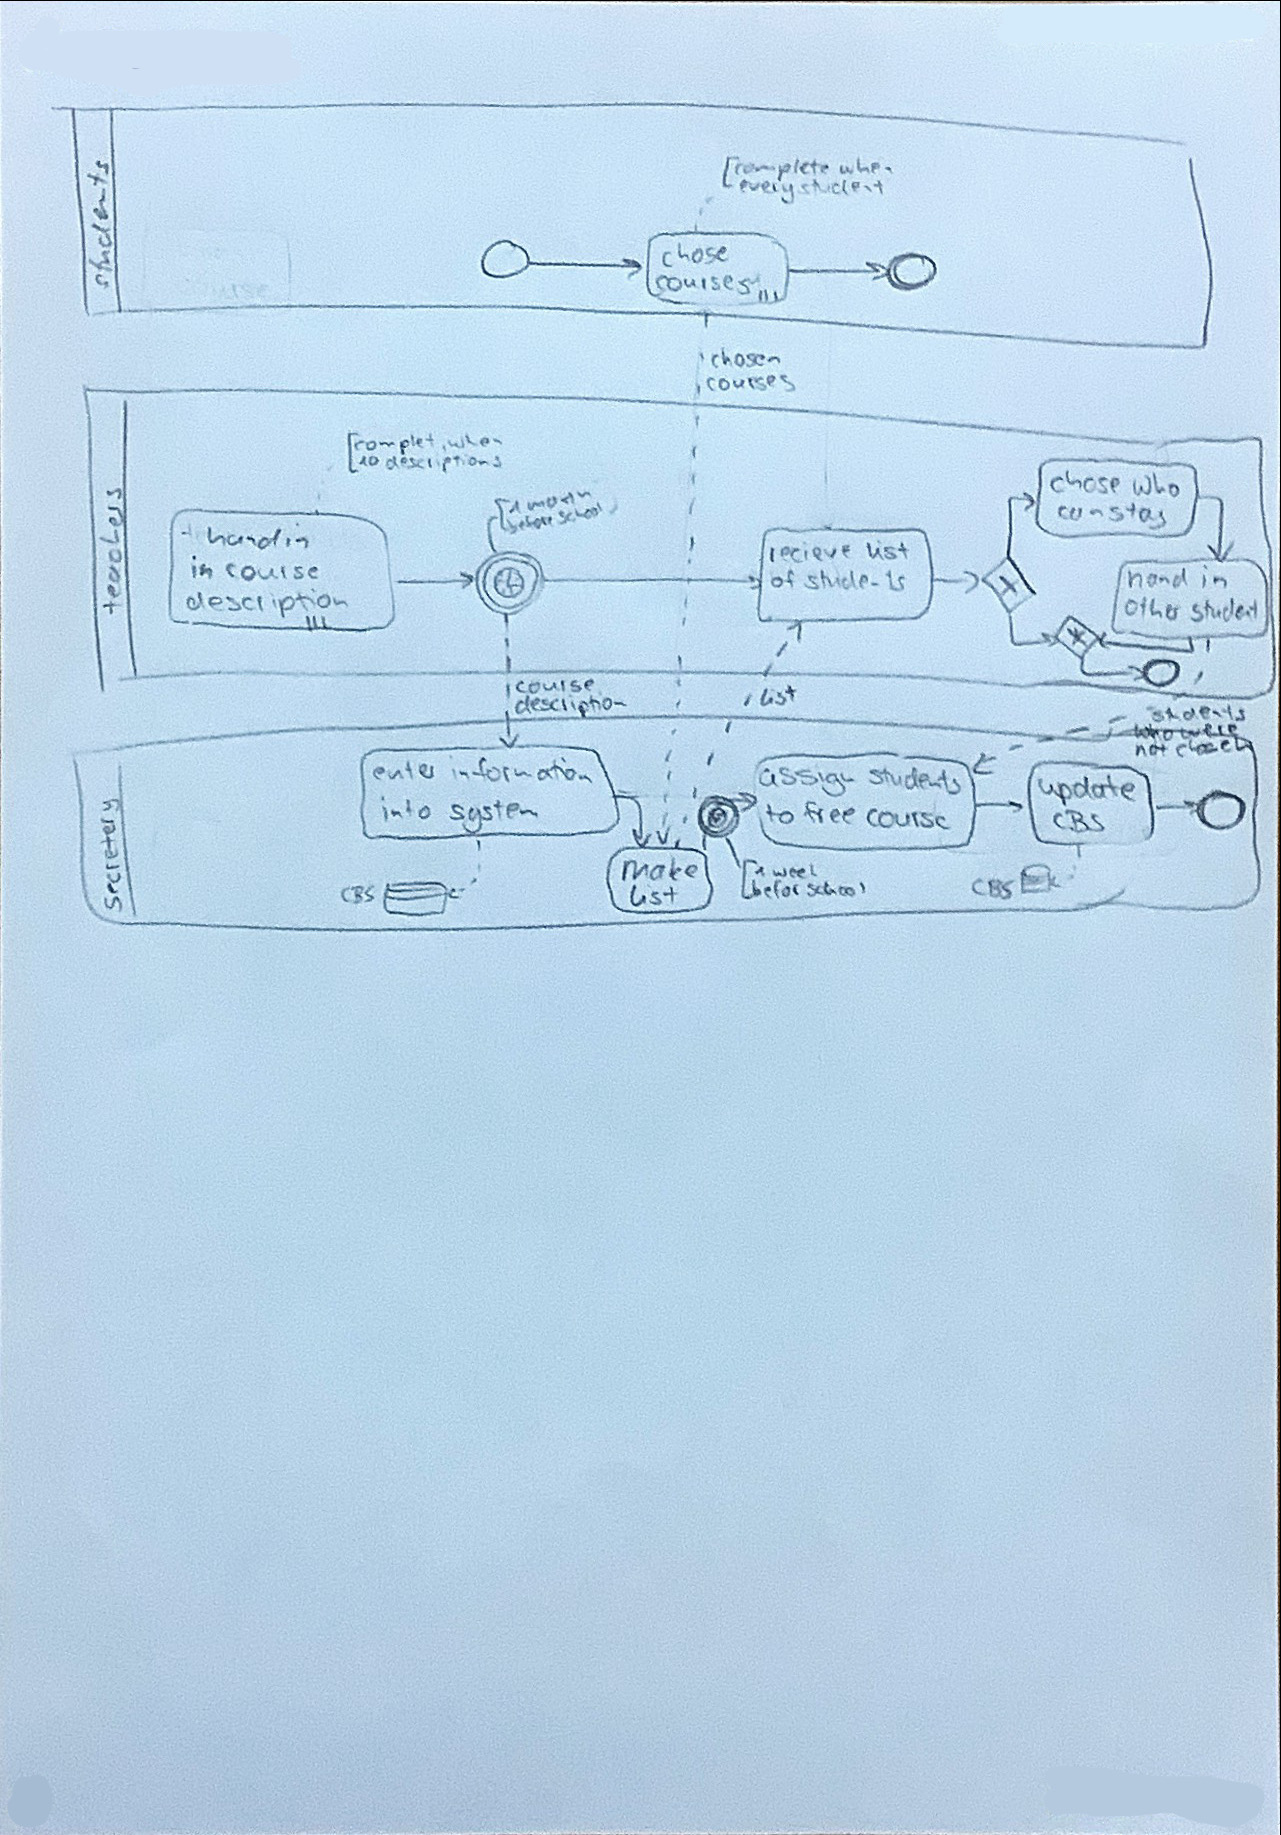 students
complete when
every student
chose
courses
chosen
courses
teachers
complet when
10 descriptions
1 month
before school
hand in
in course
description
recieve list
of students
chose who
can stay
hand in
other student
course
description
list
students
who were
not chosen
Secretery
enter information
into system
CBS
make
list
1 week
befor school
assign students
to free course
update
CBS
CBS